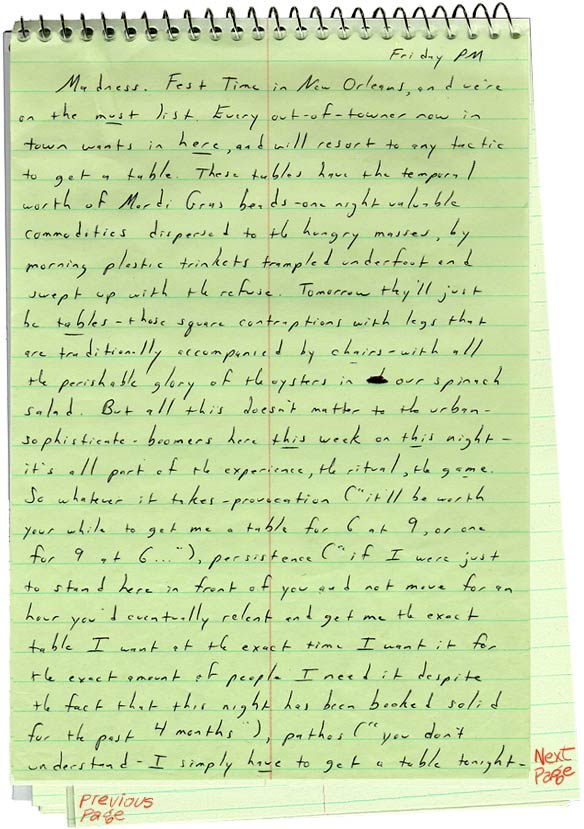 Friday PM
Madness. Fest Time in New Orleans, and we're
on the must list. Every out-of-towner now in
town wants in here, and will resort to any tactic
to get a table. These tables have the temporal
worth of Mardi Gras beads - one night valuable
commodities dispersed to the hungry masses, by
morning plastic trinkets trampled underfoot and
swept up with the refuse. Tomorrow they'll just
be tables - those square contraptions with legs that
are traditionally accompanied by chairs - with all
the perishable glory of the oysters in our spinach
salad. But all this doesn't matter to the urban-
sophisticate-boomers here this week on this night -
it's all part of the experience, the ritual, the game.
So whatever it takes - provocation ("it'll be worth
your while to get me a table for 6 at 9, or one
for 9 at 6..."), persistence ("if I were just
to stand here in front of you and not move for an
hour you'd eventually relent and get me the exact
table I want at the exact time I want it for
the exact amount of people I need it despite
the fact that this night has been booked solid
for the past 4 months"), pathos ("you don't
understand - I simply have to get a table tonight -
Next
Page
Previous
Page